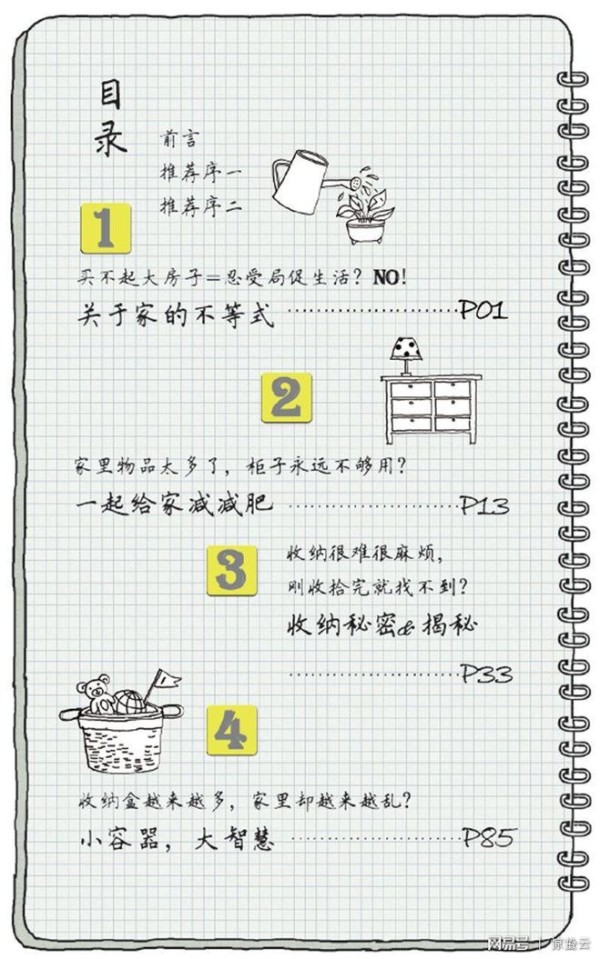 目录
前言
推荐序一
推荐序二
1
买不起大房子=忍受局促生活？NO!
关于家的不等式 ························P01
2
家里物品太多了，柜子永远不够用？
一起给家减减肥 ························P13
3
收纳很难很麻烦，
刚收拾完就找不到？
收纳秘密&揭秘
························P33
4
收纳盒越来越多，家里却越来越乱？
小容器，大智慧 ························P85
网易号